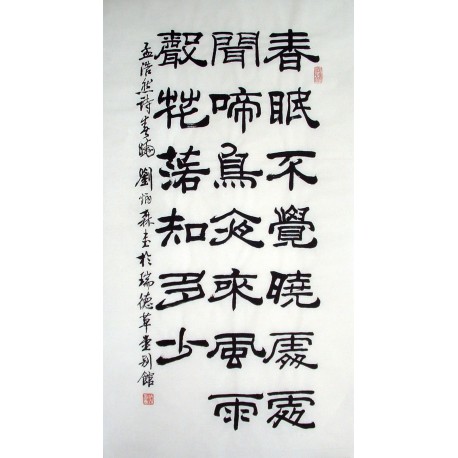 春眠不覺曉處處
聞啼鳥夜來風雨
聲花落知多少
孟浩然詩春曉 劉炳森書於瑞德草堂別館